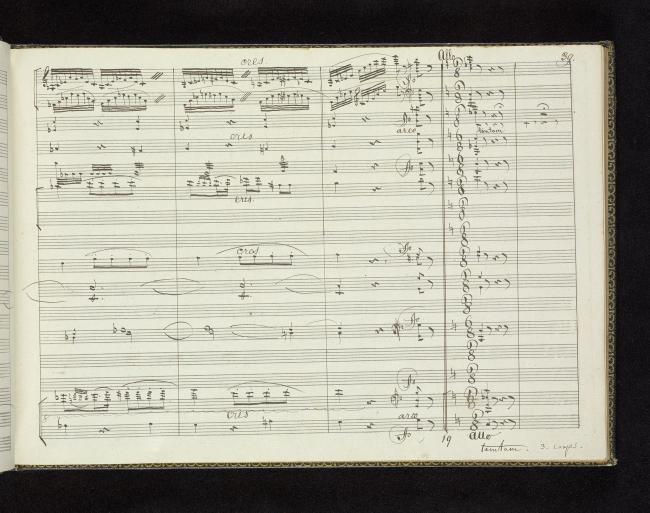 cres
Allo
39.
cres
arco
tamtam
cres
cres
cres
arco
19
Allo
tamtam. 3. coups.